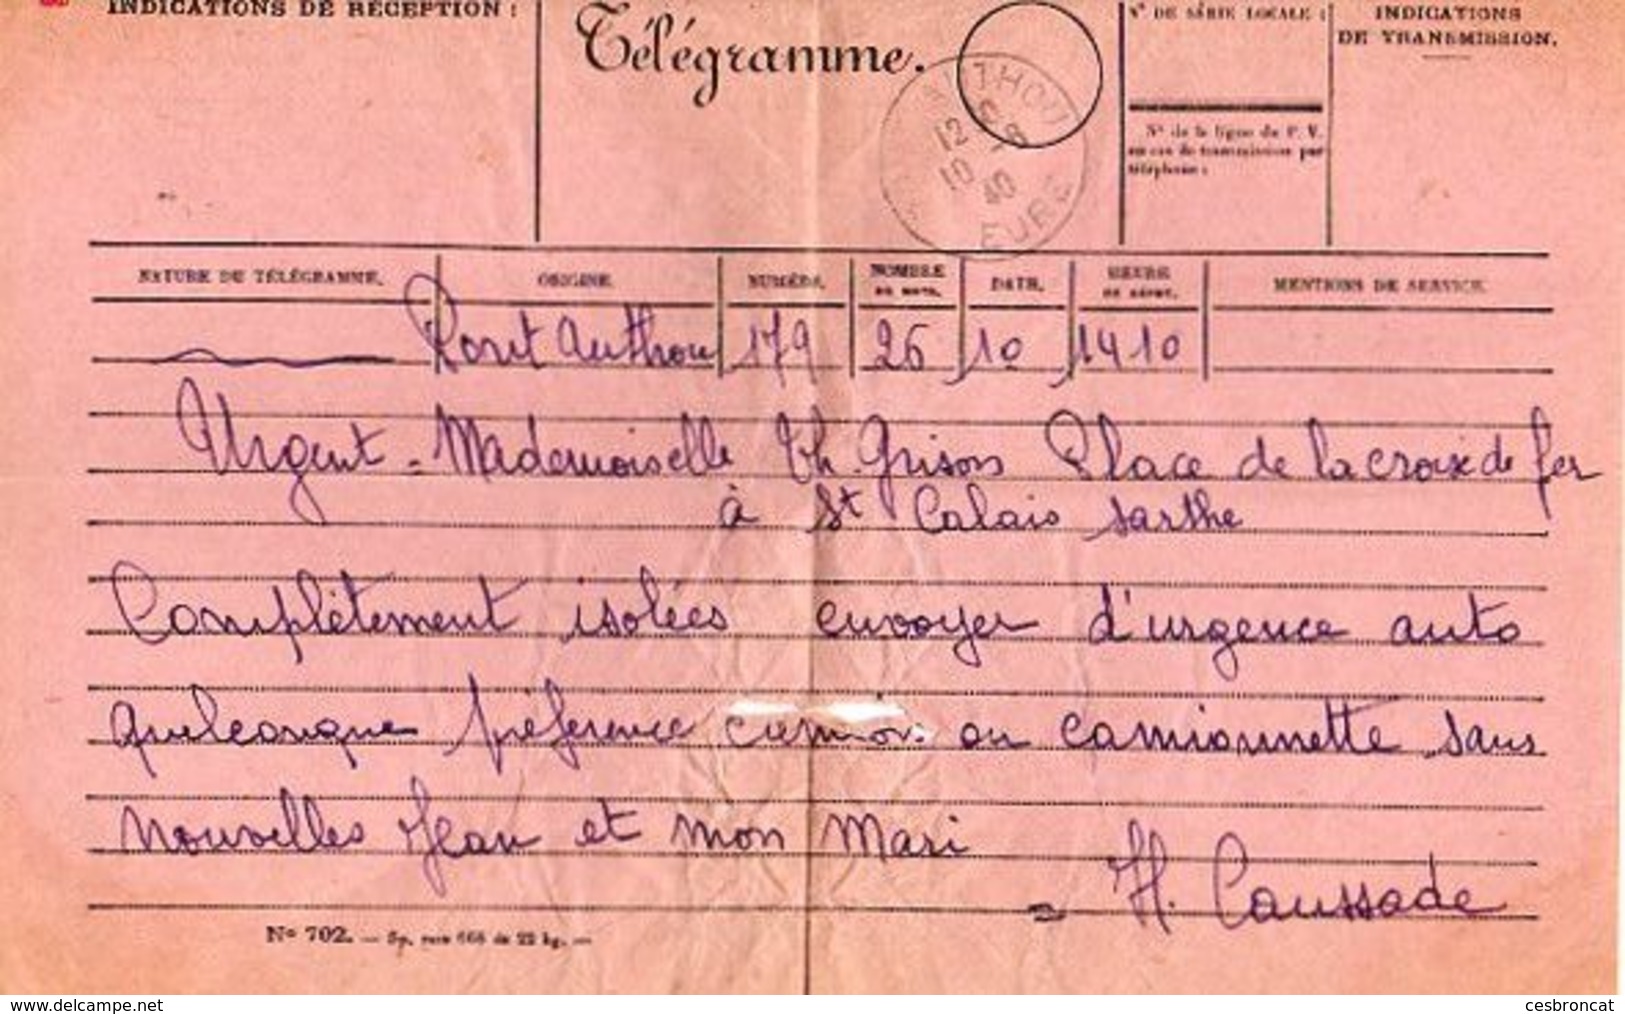 INDICATIONS DE RÉCEPTION :
Télégramme.
N° DE SÉRIE LOCALE :
N° de la ligne du P. V.
au cas de transmission par
téléphone :
INDICATIONS
DE TRANSMISSION.
12 - 8
10 40
EURE
NATURE DU TÉLÉGRAMME. ORIGINE. NUMÉRO. NOMBRE DE MOTS. DATE. HEURE DE DÉPÔT. MENTIONS DE SERVICE.
Pont Authou 179 26 10 1410
Urgent = Mademoiselle Th. Grison Place de la croix de fer
à St Calais Sarthe
Complètement isolées envoyer d'urgence auto
quelconque préférence camion ou camionnette sans
nouvelles Jean et mon Mari
= H. Caussade
N° 702.
www.delcampe.net
cesbroncat